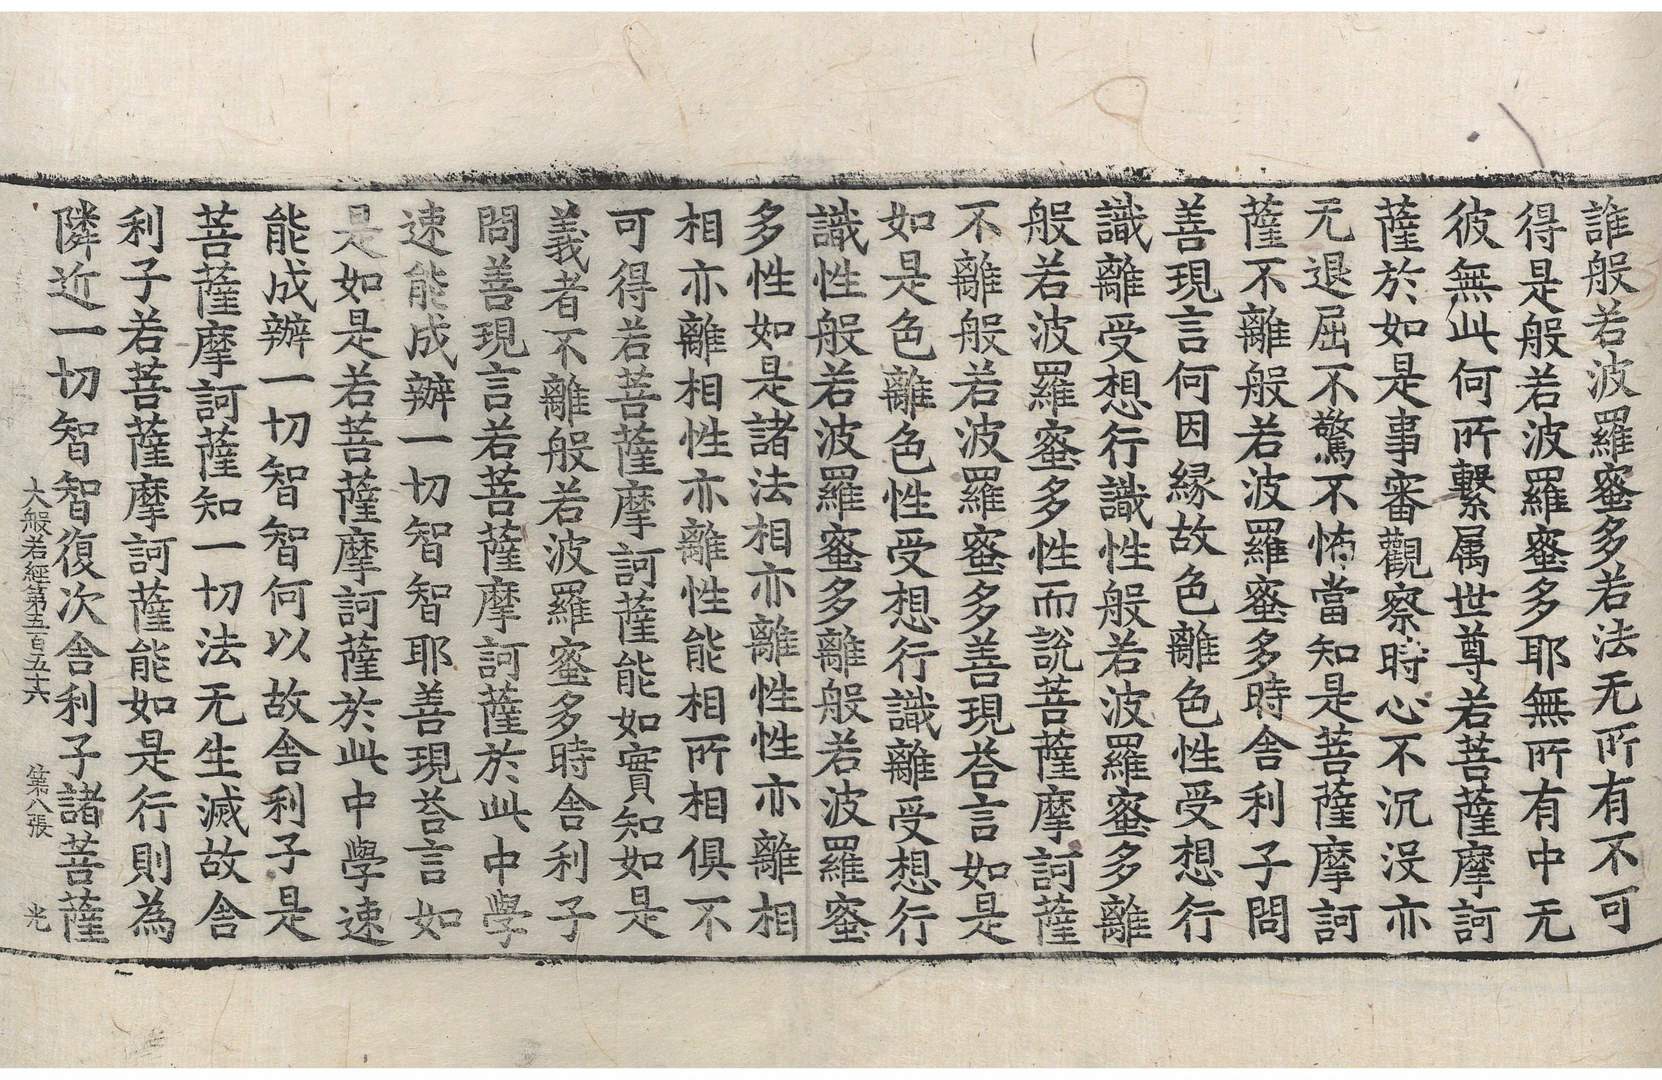 誰般若波羅蜜多若法无所有不可
得是般若波羅蜜多耶無所有中无
彼無此何所繫属世尊若菩薩摩訶
薩於如是事審觀察時心不沉没亦
无退屈不驚不怖當知是菩薩摩訶
薩不離般若波羅蜜多時舍利子問
善現言何因縁故色離色性受想行
識離受想行識性般若波羅蜜多離
般若波羅蜜多性而說菩薩摩訶薩
不離般若波羅蜜多善現荅言如是
如是色離色性受想行識離受想行
識性般若波羅蜜多離般若波羅蜜
多性如是諸法相亦離性性亦離相
相亦離相性亦離性能相所相俱不
可得若菩薩摩訶薩能如實知如是
義者不離般若波羅蜜多時舍利子
問善現言若菩薩摩訶薩於此中學
速能成辦一切智智耶善現荅言如
是如是若菩薩摩訶薩於此中學速
能成辦一切智智何以故舍利子是
菩薩摩訶薩知一切法无生滅故舍
利子若菩薩摩訶薩能如是行則為
隣近一切智智復次舍利子諸菩薩
大般若經第五百五十六　第八張　光